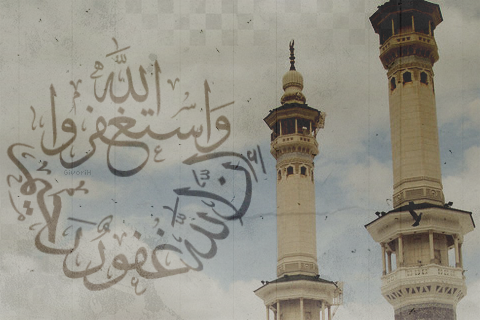 واستغفروا الله
إن الله غفور رحيم